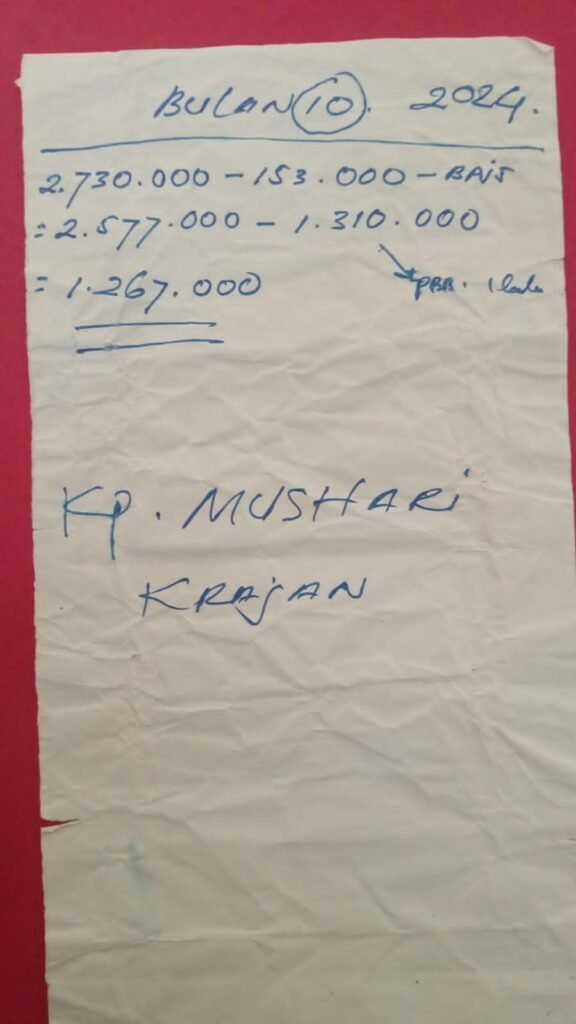 BULAN 10. 2024.
2.730.000 - 153.000 - BAIS
= 2.577.000 - 1.310.000
= 1.267.000
PBB. 1
Kp. MUSHARi
KRAJAN